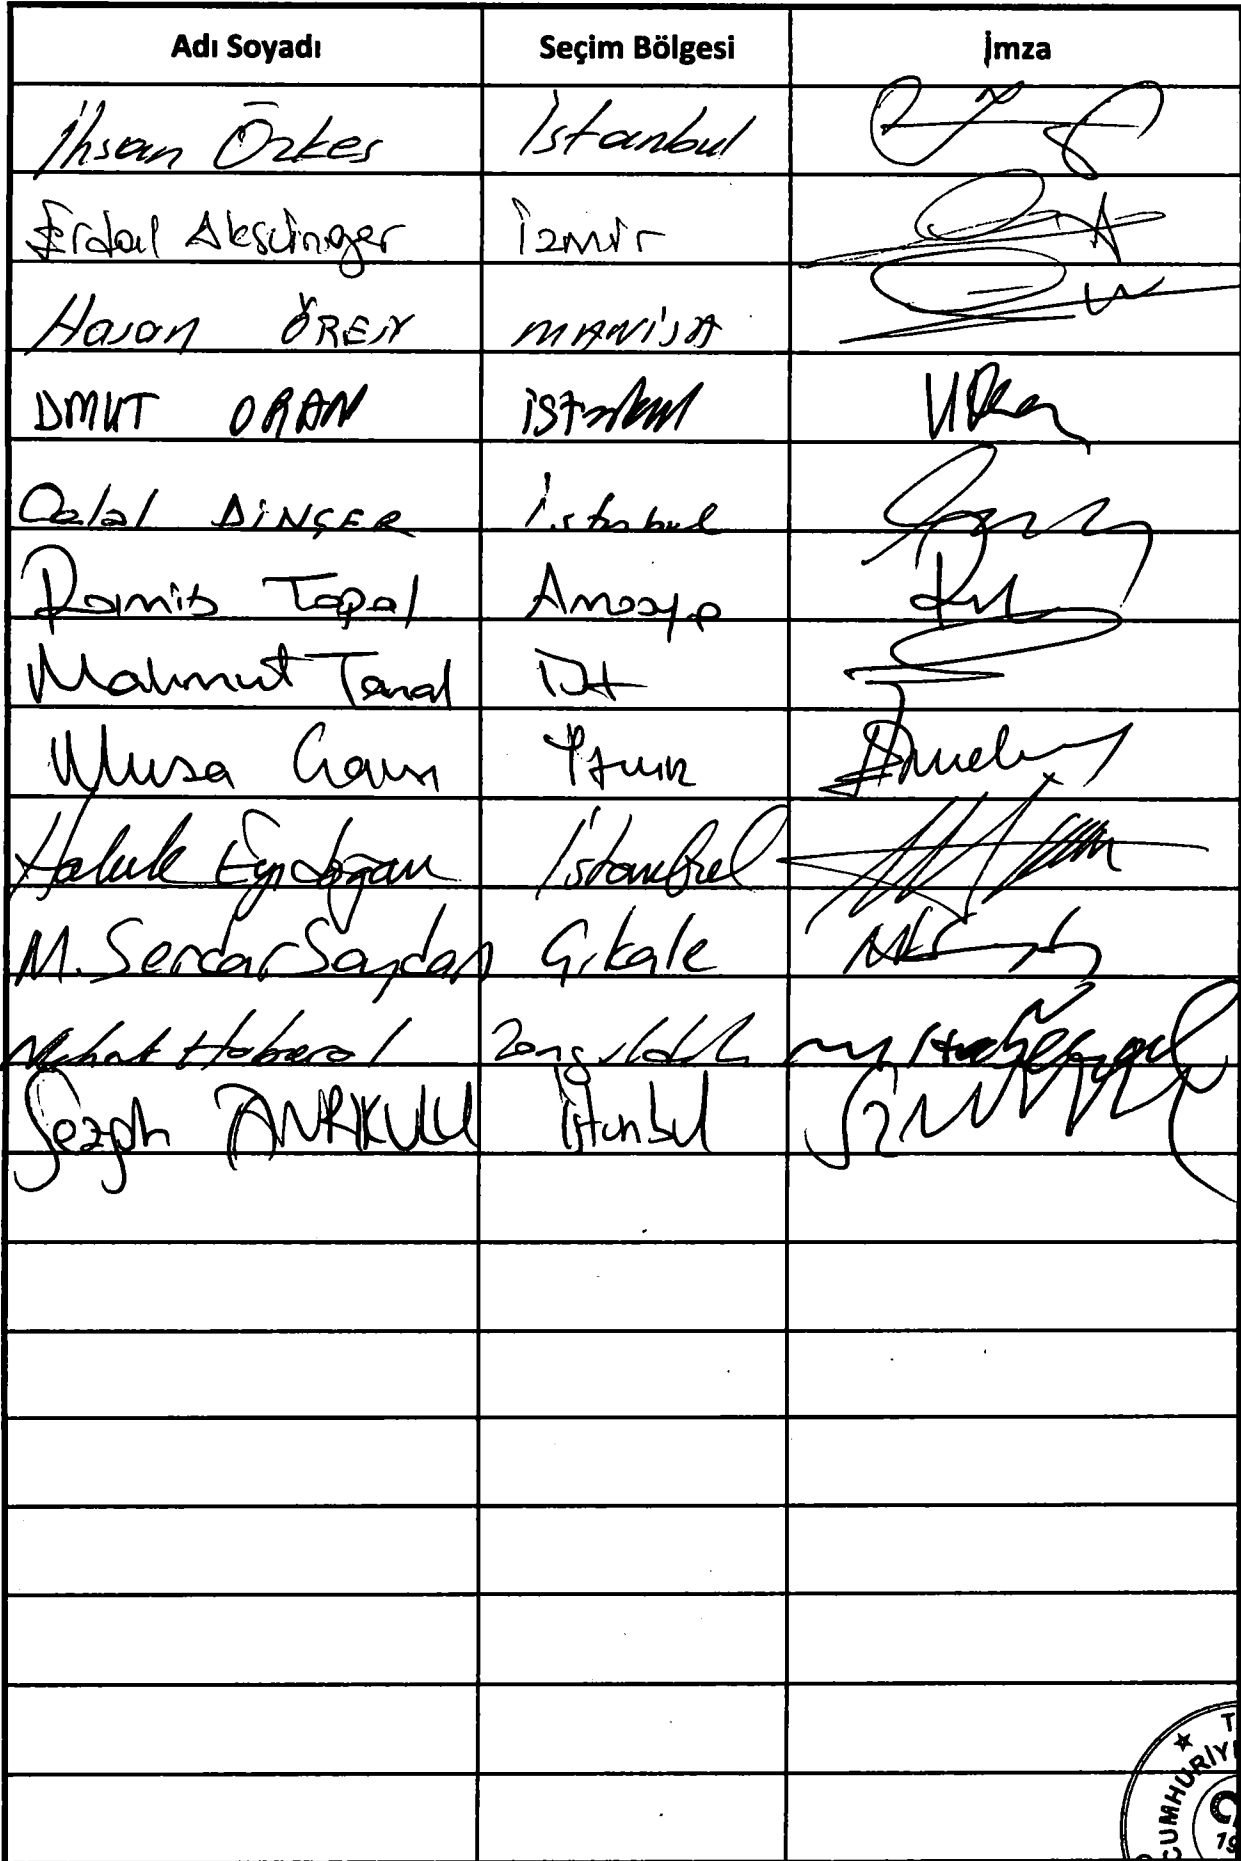 Adı Soyadı Seçim Bölgesi İmza
İhsan Özkes İstanbul
Erdal Aksünger İzmir
Hasan ÖREN MANİSA
UMUT ORAN İSTANBUL
Celal DİNÇER İstanbul
Ramis Topal Amasya
Mahmut Tanal İst
Musa Çam İzmir
Haluk Eyidoğan İstanbul
M. Serdar Soydan Ç.kale
Mehmet Haberal Zonguldak
Sezgin TANRIKULU İstanbul
T.
CUMHURİYE
19